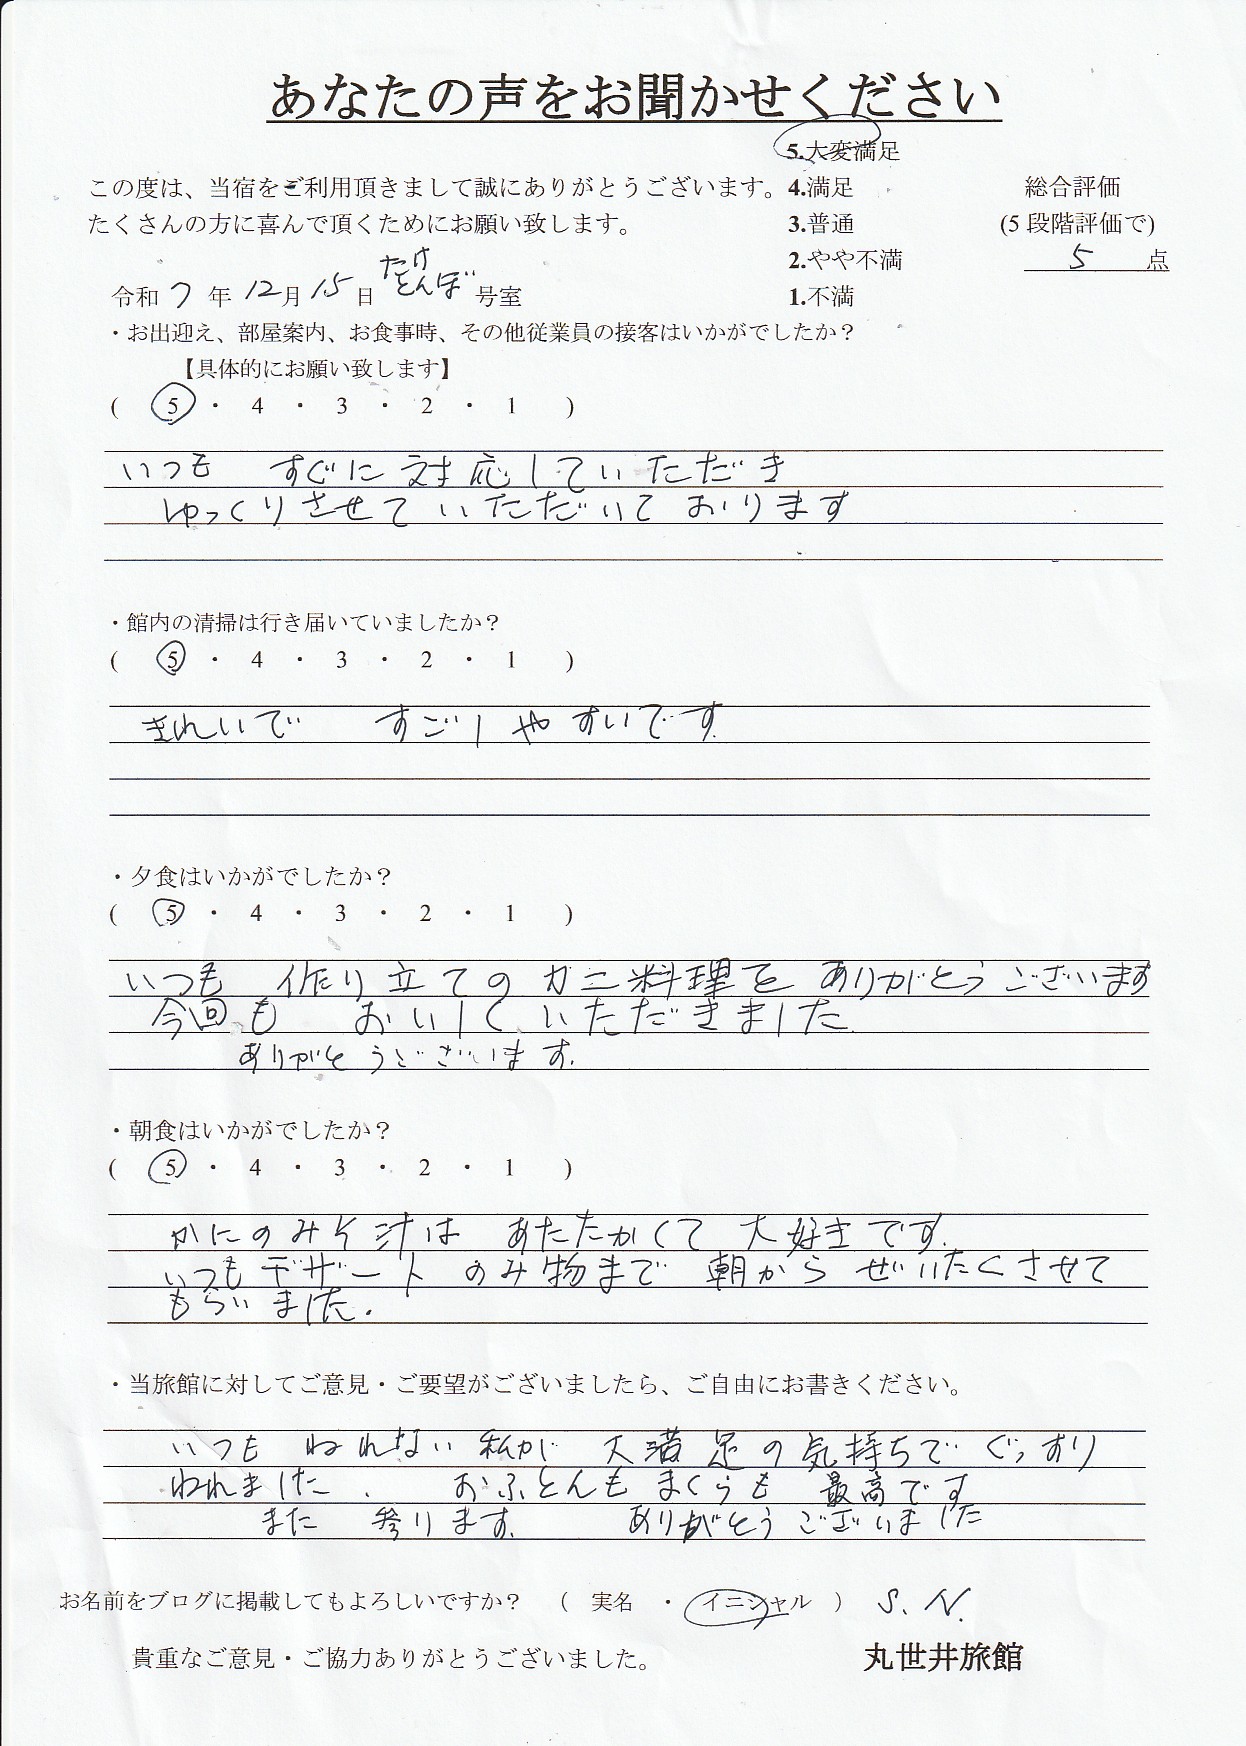 あなたの声をお聞かせください
5.大変満足
この度は、当宿をご利用頂きまして誠にありがとうございます。 4.満足 総合評価
たくさんの方に喜んで頂くためにお願い致します。 3.普通 (5段階評価で)
2.やや不満 5 点
たけ
令和 7 年 12 月 15 日 とんぼ 号室 1.不満
・お出迎え、部屋案内、お食事時、その他従業員の接客はいかがでしたか？
【具体的にお願い致します】
( 5 ・ 4 ・ 3 ・ 2 ・ 1 )
いつも すぐに対応していただき
ゆっくりさせていただいております
・館内の清掃は行き届いていましたか？
( 5 ・ 4 ・ 3 ・ 2 ・ 1 )
きれいで すごしやすいです
・夕食はいかがでしたか？
( 5 ・ 4 ・ 3 ・ 2 ・ 1 )
いつも 作り立てのカニ料理を ありがとうございます
今回も おいしくいただきました
ありがとうございます.
・朝食はいかがでしたか？
( 5 ・ 4 ・ 3 ・ 2 ・ 1 )
かにのみそ汁は あたたかくて 大好きです.
いつもデザート のみ物まで 朝から ぜいたくさせて
もらいました.
・当旅館に対してご意見・ご要望がございましたら、ご自由にお書きください。
いつも ねれない 私が 大満足の気持ちで ぐっすり
ねれました. おふとんも まくらも 最高です
また 参ります. ありがとうございました
お名前をブログに掲載してもよろしいですか？ （ 実名 ・ イニシャル ） S. N.
貴重なご意見・ご協力ありがとうございました。 丸世井旅館